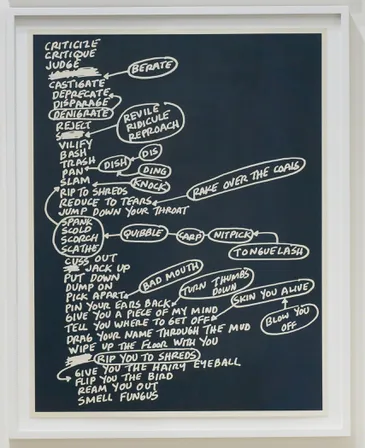 CRITICIZE
CRITIQUE
JUDGE
BERATE
CASTIGATE
DEPRECATE
DISPARAGE
DENIGRATE
REJECT
REVILE
RIDICULE
REPROACH
VILIFY
BASH
TRASH
DISH
DIS
PAN
DING
SLAM
KNOCK
RAKE OVER THE COALS
RIP TO SHREDS
REDUCE TO TEARS
JUMP DOWN YOUR THROAT
SPANK
SCOLD
SCORCH
SCATHE
QUIBBLE
CARP
NITPICK
TONGUELASH
CUSS OUT
JACK UP
PUT DOWN
DUMP ON
BAD MOUTH
PICK APART
TURN THUMBS DOWN
PIN YOUR EARS BACK
SKIN YOU ALIVE
GIVE YOU A PIECE OF MY MIND
TELL YOU WHERE TO GET OFF
BLOW YOU OFF
DRAG YOUR NAME THROUGH THE MUD
WIPE UP THE FLOOR WITH YOU
RIP YOU TO SHREDS
GIVE YOU THE HAIRY EYEBALL
FLIP YOU THE BIRD
REAM YOU OUT
SMELL FUNGUS